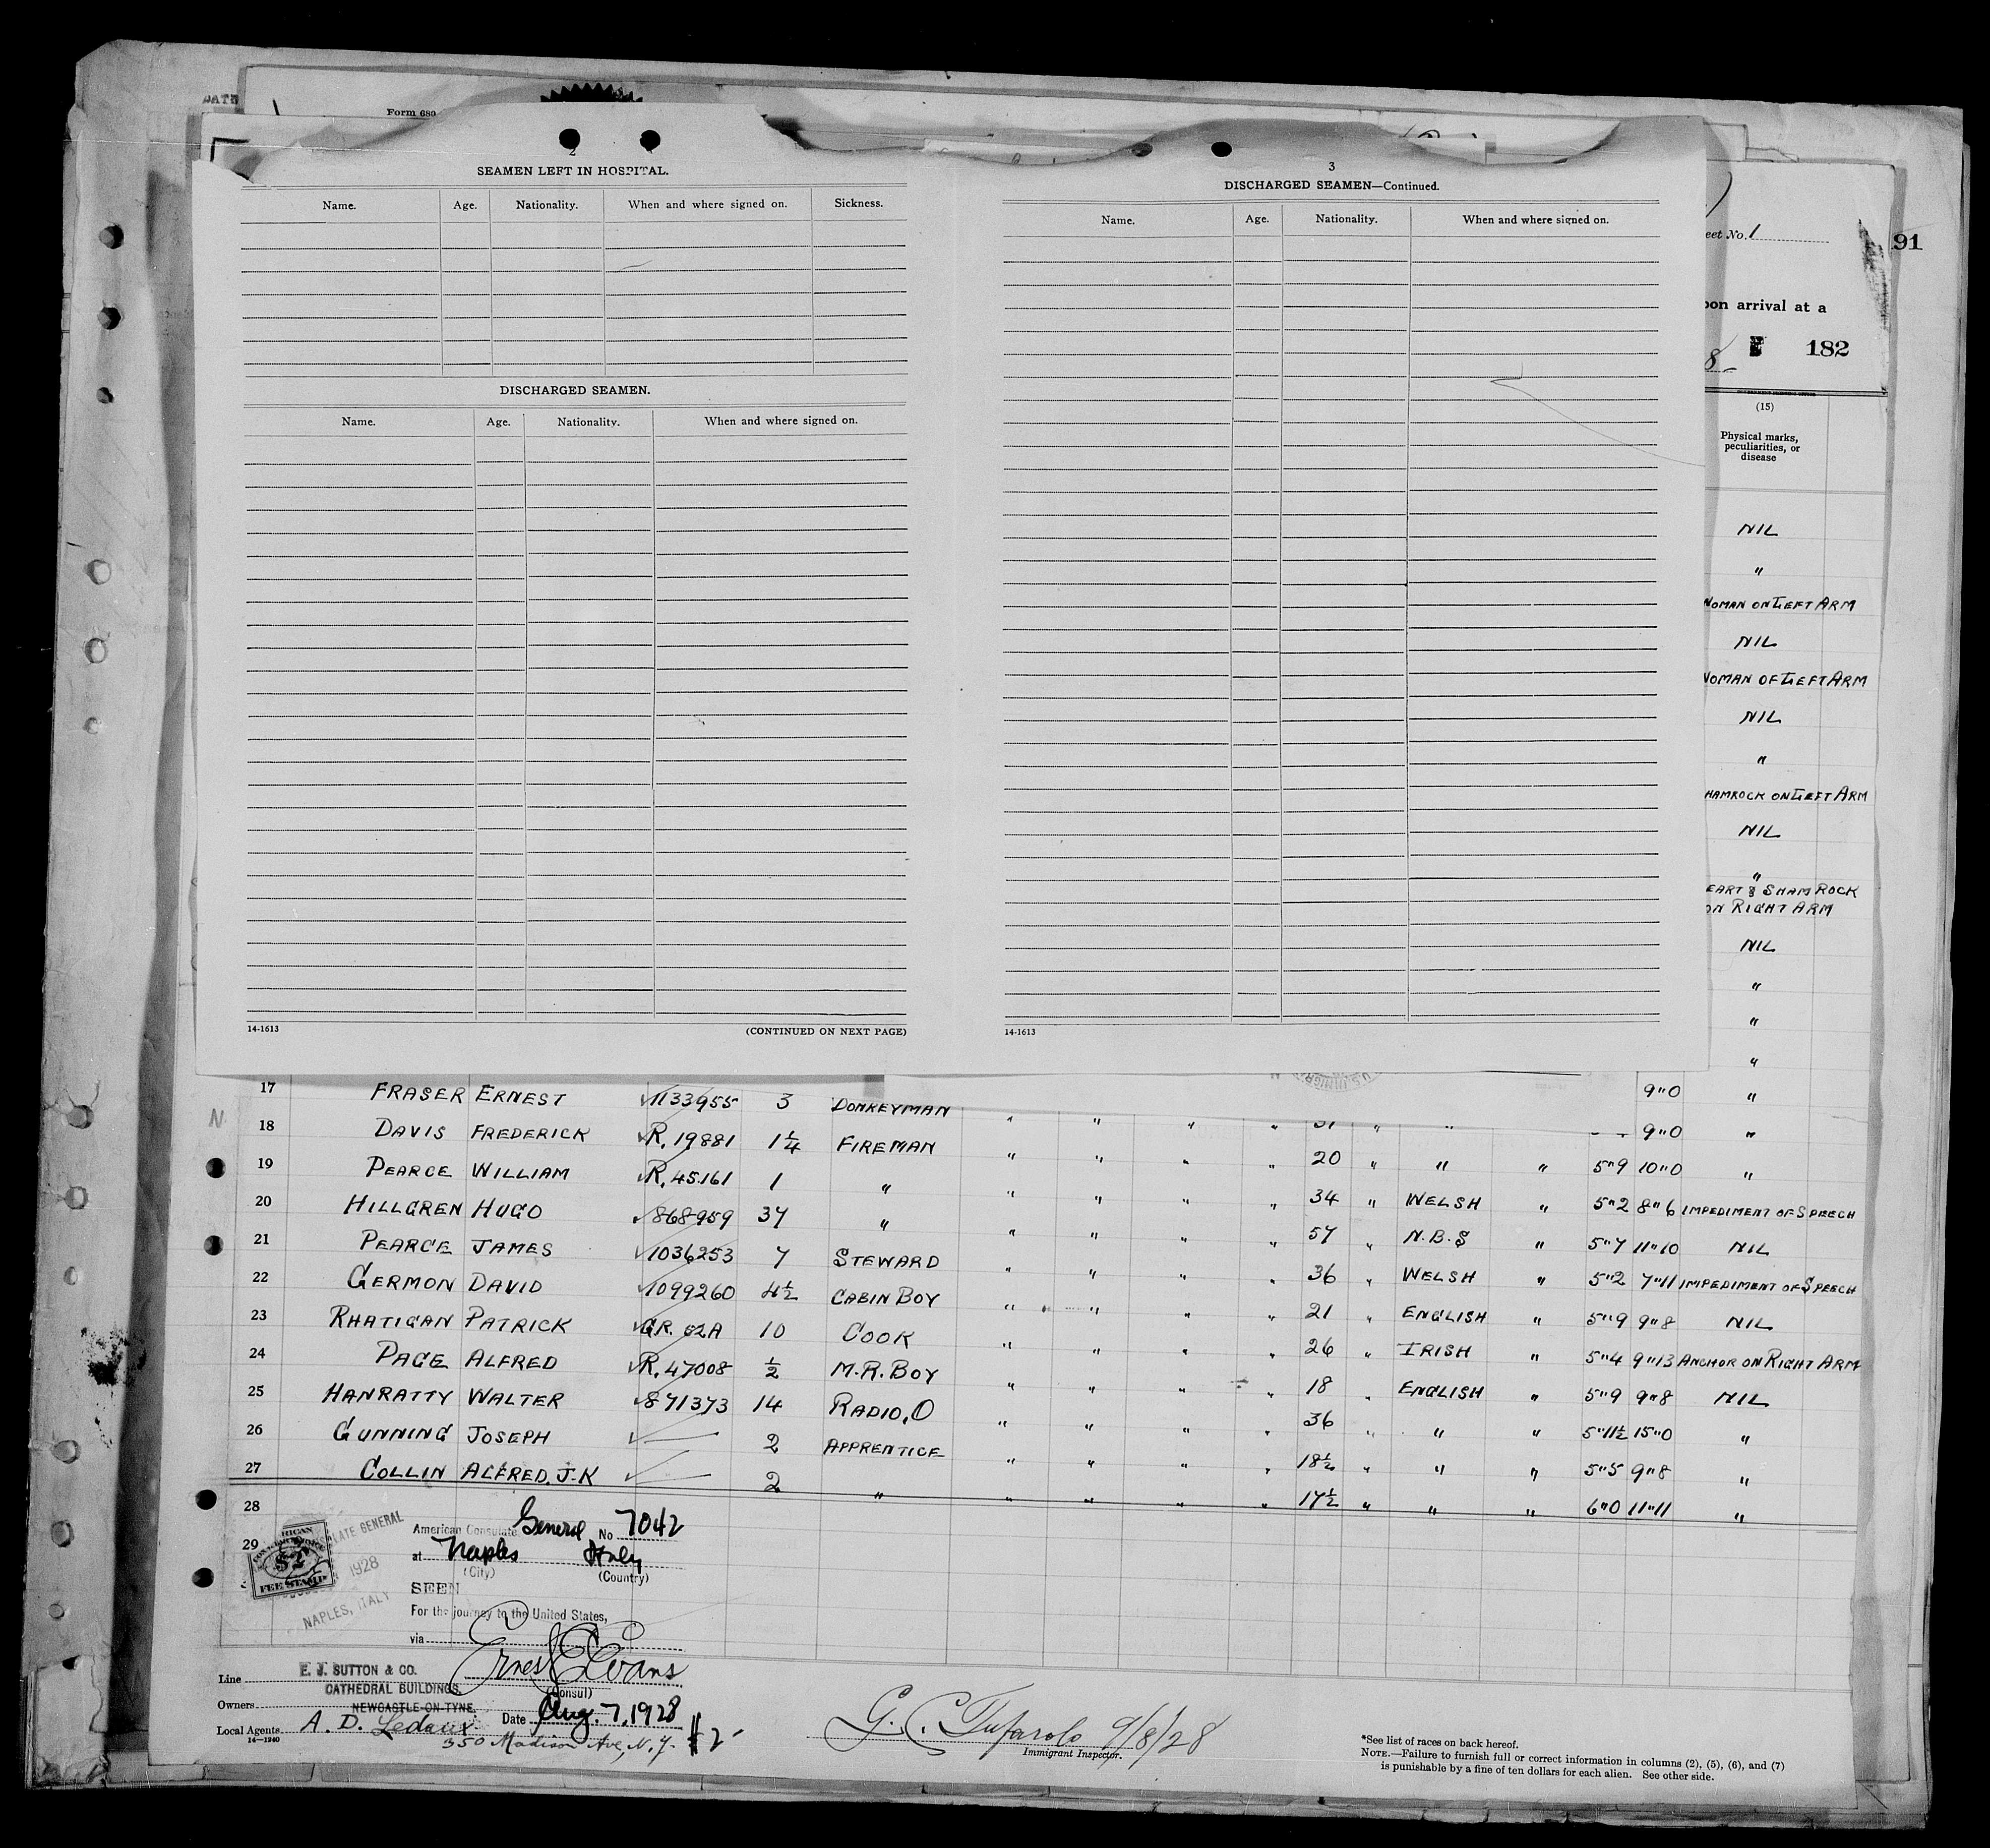 DATE
Form 689
2
SEAMEN LEFT IN HOSPITAL.
Name. Age. Nationality. When and where signed on. Sickness.
DISCHARGED SEAMEN.
Name. Age. Nationality. When and where signed on.
14-1613 (CONTINUED ON NEXT PAGE)
3
DISCHARGED SEAMEN—Continued.
Name. Age. Nationality. When and where signed on.
14-1613
eet No. 1
91
pon arrival at a
8 182
(15)
Physical marks,
peculiarities, or
disease
NIL
"
WOMAN ON LEFT ARM
NIL
WOMAN OF LEFT ARM
NIL
"
HAMROCK ON LEFT ARM
NIL
"
EART & SHAMROCK
ON RIGHT ARM
NIL
"
"
"
17 FRASER ERNEST 1133955 3 DONKEYMAN 9"0 "
18 DAVIS FREDERICK R. 19881 1¼ FIREMAN " " " " " " 9"0 "
19 PEARCE WILLIAM R. 45161 1 " " " " " 20 " " " 5"9 10"0 "
20 HILLGREN HUGO 868959 37 " " " " " 34 " WELSH " 5"2 8"6 IMPEDIMENT OF SPEECH
21 PEARCE JAMES 1036253 7 STEWARD " " " " 57 " N.B.S " 5"7 11"10 NIL
22 GERMON DAVID 1099260 4½ CABIN BOY " " " " 36 " WELSH " 5"2 7"11 IMPEDIMENT OF SPEECH
23 RHATIGAN PATRICK GR. 62A 10 COOK " " " " 21 " ENGLISH " 5"9 9"8 NIL
24 PAGE ALFRED R. 47008 ½ M.R. BOY " " " " 26 " IRISH " 5"4 9"13 ANCHOR ON RIGHT ARM
25 HANRATTY WALTER 871373 14 RADIO. O " " " " 18 " ENGLISH " 5"9 9"8 NIL
26 GUNNING JOSEPH 2 APPRENTICE " " " " 36 " " " 5"11½ 15"0 "
27 COLLIN ALFRED. J-K 2 " " " " " 18½ " " " 5"5 9"8 "
28 " " " " 17½ " " " 6"0 11"11 "
29
American Consulate General No 7042
at Naples Italy
(City) (Country)
SEEN
For the journey to the United States,
via
Ernest E Evans
(Consul)
Date Aug. 7, 1928
$2
RICAN
$2
FEE STAMP
LATE GENERAL
1928
NAPLES, ITALY
Line E. J. SUTTON & CO.
CATHEDRAL BUILDINGS.
Owners NEWCASTLE-ON-TYNE.
Local Agents A. D. Ledoux
14—1240
350 Madison Ave, N.Y.
G. C. Tufarolo 9/8/28
Immigrant Inspector.
*See list of races on back hereof.
NOTE.—Failure to furnish full or correct information in columns (2), (5), (6), and (7)
is punishable by a fine of ten dollars for each alien. See other side.